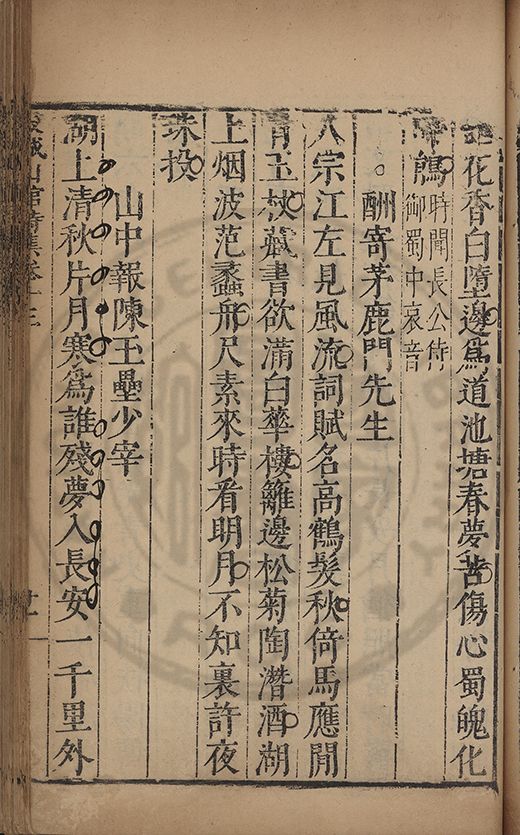 花香白墮邊爲道池塘春夢苦傷心蜀魄化
鵑時聞長公侍
御蜀中哀音
酬寄茅鹿門先生
八宗江左見風流詞賦名高鶴髮秋倚馬應閒
青玉杖藏書欲滿白華樓籬邊松菊陶潛酒湖
上烟波范蠡舟尺素來時看明月不知裏許夜
珠投
山中報陳玉壘少宰
湖上清秋片月寒爲誰殘夢入長安一千里外
城山館詩集卷十三